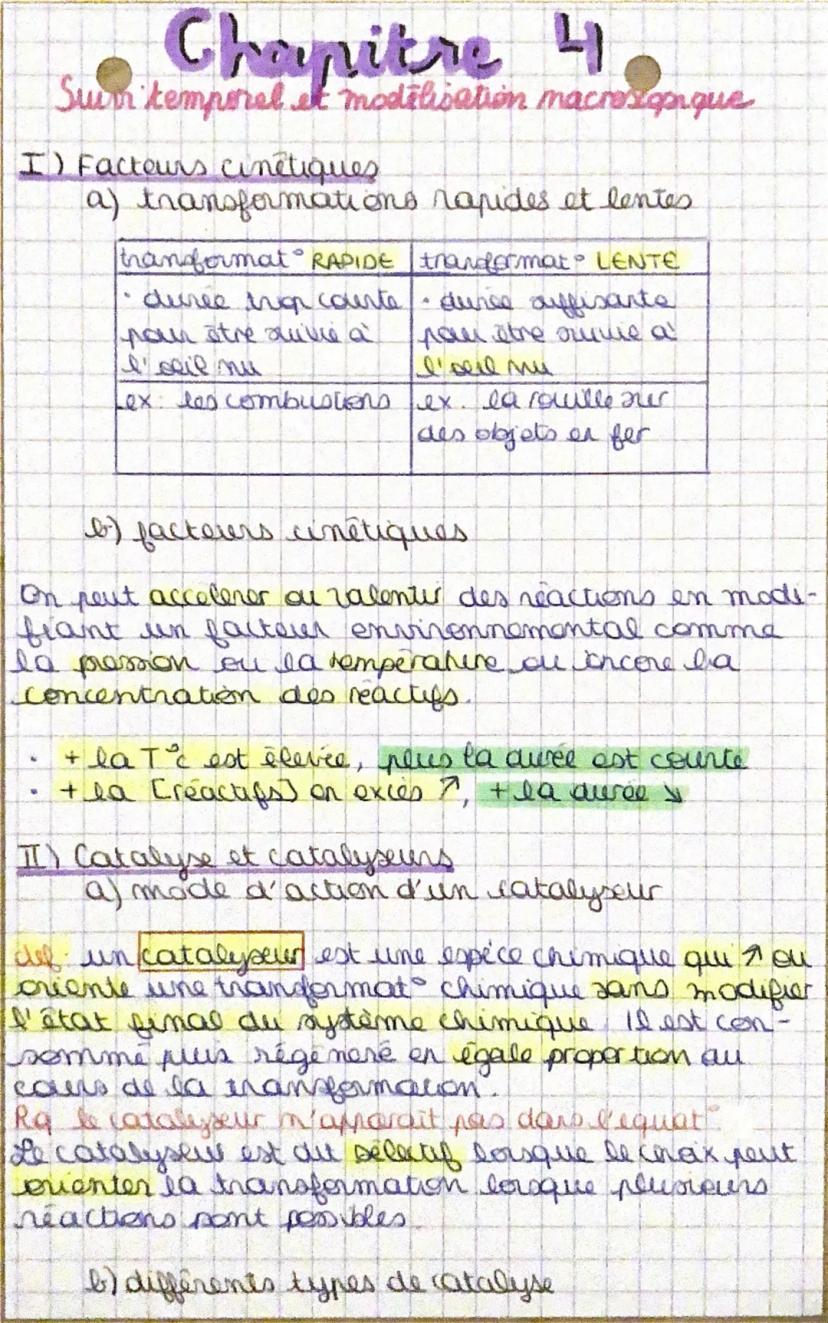 Chapitre 4
Suivi temporel et modélisation macroscopique
I) Facteurs cinétiques
a) transformations rapides et lentes
transformat° RAPIDE
transformat° LENTE
· durée trop courte
pour être suivie à
l'oeil nu
· durée suffisante
pour être suivie à
l'oeil nu
ex: les combustions
ex: la rouille sur
des objets en fer
b) facteurs cinétiques
On peut accélerer ou ralentir des réactions en modi-
fiant un facteur environnemental comme
la pression ou la température ou encore la
concentration des réactifs.
· + la T°c est élevée, plus la durée est courte
· + la [réactifs] en excès ↗, + la durée ↘
II) Catalyse et catalyseurs
a) mode d'action d'un catalyseur
def: un catalyseur est une espèce chimique qui ↗ ou
oriente une transformat° chimique sans modifier
l'état final du système chimique. Il est con-
sommé puis régénéré en égale proportion au
cours de la transformation.
Rq le catalyseur n'apparait pas dans l'equat°
Le catalyseur est dit sélectif lorsque le choix peut
orienter la transformation lorsque plusieurs
réactions sont possibles.
b) différents types de catalyse